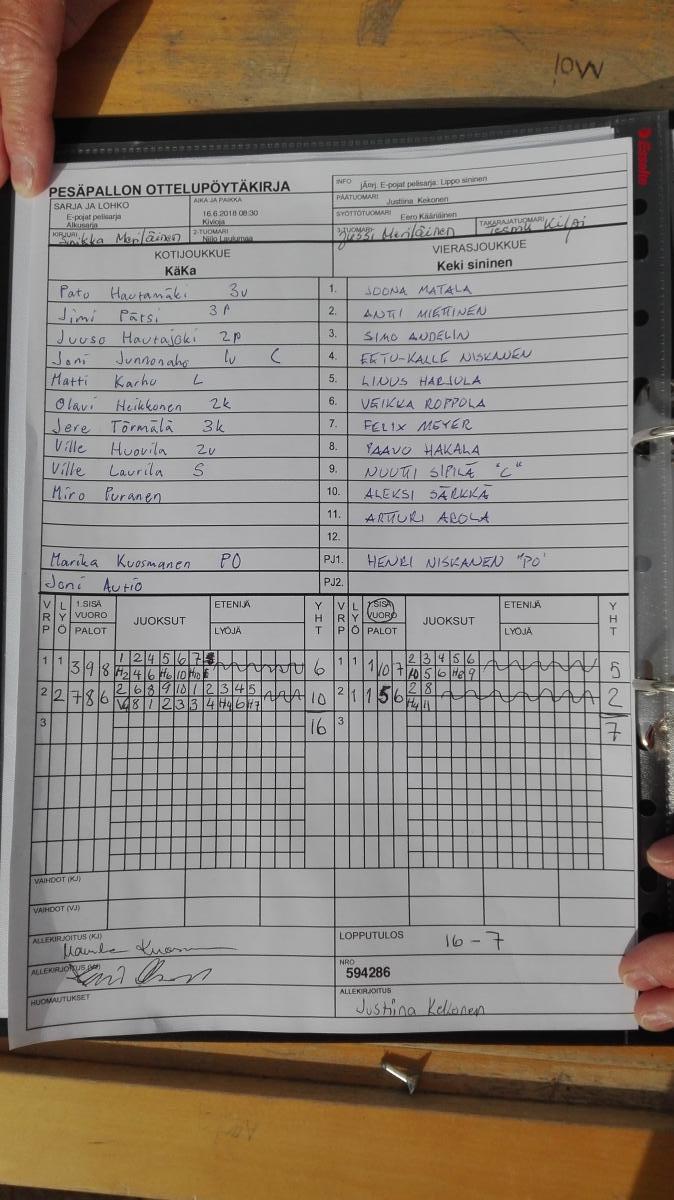 Moi
Esselte
PESÄPALLON OTTELUPÖYTÄKIRJA
SARJA JA LOHKO
E-pojat pelisarja
Alkusarja
AIKA JA PAIKKA
16.6.2018 08:30
Kivioja
KIRJURI
Sinikka Meriläinen
2-TUOMARI
Niilo Laulumaa
INFO jÄorj. E-pojat pelisarja: Lippo sininen
PÄÄTUOMARI Justiina Kekonen
SYÖTTÖTUOMARI Eero Kääriäinen
3-TUOMARI Jussi Meriläinen
TAKARAJATUOMARI Teemu Kilpi
KOTIJOUKKUE
KäKa
VIERASJOUKKUE
Keki sininen
Pato Hautamäki 3v 1. JOONA MATALA
Jimi Pätsi 3P 2. ANTTI MIETTINEN
Juuso Hautajoki 2p 3. SIMO ANDELIN
Joni Junnonaho 1v C 4. EETU-KALLE NISKANEN
Matti Karhu L 5. LINUS HARJULA
Olavi Heikkonen 2k 6. VEIKKA ROPPOLA
Jere Törmälä 3k 7. FELIX MEYER
Ville Huovila 2v 8. PAAVO HAKALA
Ville Laurila S 9. NUUTTI SIPILÄ "C"
Miro Puranen 10. ALEKSI SÄRKKÄ
11. ARTTURI AROLA
12.
Marika Kuosmanen PO PJ1. HENRI NISKANEN "PO"
Joni Autio PJ2.
VRP LYÖ 1.SISÄ VUORO PALOT JUOKSUT ETENIJÄ LYÖJÄ YHT VRP LYÖ 1.SISÄ VUORO PALOT JUOKSUT ETENIJÄ LYÖJÄ YHT
1 1 3 9 8 1 2 4 5 6 7 6 1 1 1 10 7 2 3 4 5 6 5
H2 4 6 H6 10 H10 10 5 6 H8 9
2 2 7 8 6 2 6 8 9 10 1 2 3 4 5 10 2 1 1 5 6 2 8 2
8 1 2 3 3 4 H4 6 H7 H4 11
3 16 3 7
VAIHDOT (KJ)
VAIHDOT (VJ)
ALLEKIRJOITUS (KJ)
ALLEKIRJOITUS (VJ)
HUOMAUTUKSET
LOPPUTULOS 16-7
NRO
594286
ALLEKIRJOITUS
Justiina Kekonen